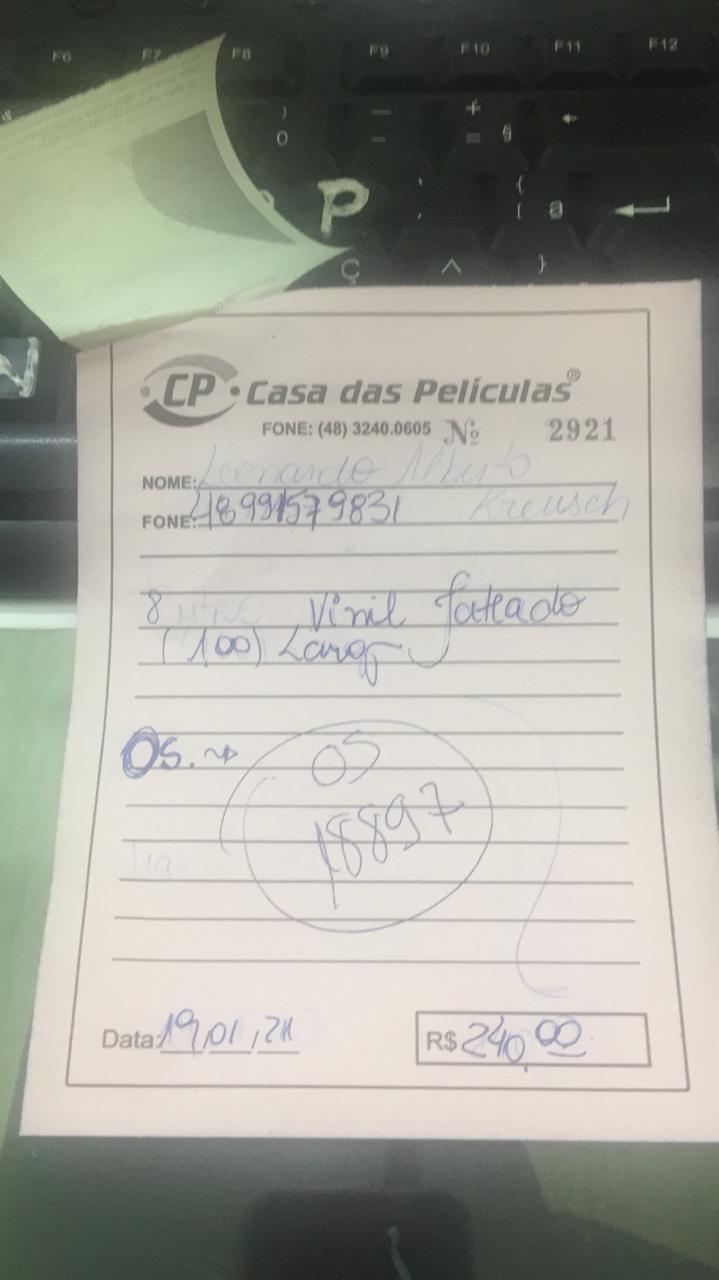 F6 F7 F8 F9 F10 F11 F12
) 0 — - + = §
P ` ´ { [ ª
Ç ^ }
CP Casa das Películas®
FONE: (48) 3240.0605 Nº 2921
NOME: Leonardo Alberto
Kreusch
FONE: 48991579831
8 MTRE Vinil Jateado
(100) Larg
OS. →
OS
18897
Data: 19/01/21
R$ 240,00